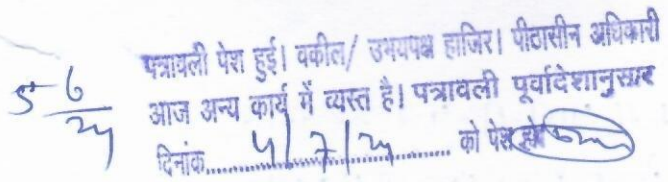 5-6
24
पत्रावली पेश हुई। वकील/ उभयपक्ष हाजिर। पीठासीन अधिकारी
आज अन्य कार्य में व्यस्त है। पत्रावली पूर्वादेशानुसार
दिनांक......4/7/24...... को पेश हो